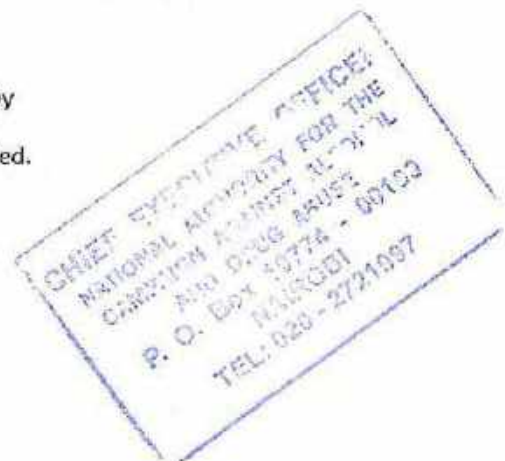 by
ed.
CHIEF EXECUTIVE OFFICER
NATIONAL AUTHORITY FOR THE
CAMPAIGN AGAINST ALCOHOL
AND DRUG ABUSE
P. O. Box 10774 - 00100
NAIROBI
TEL: 020 - 2721997